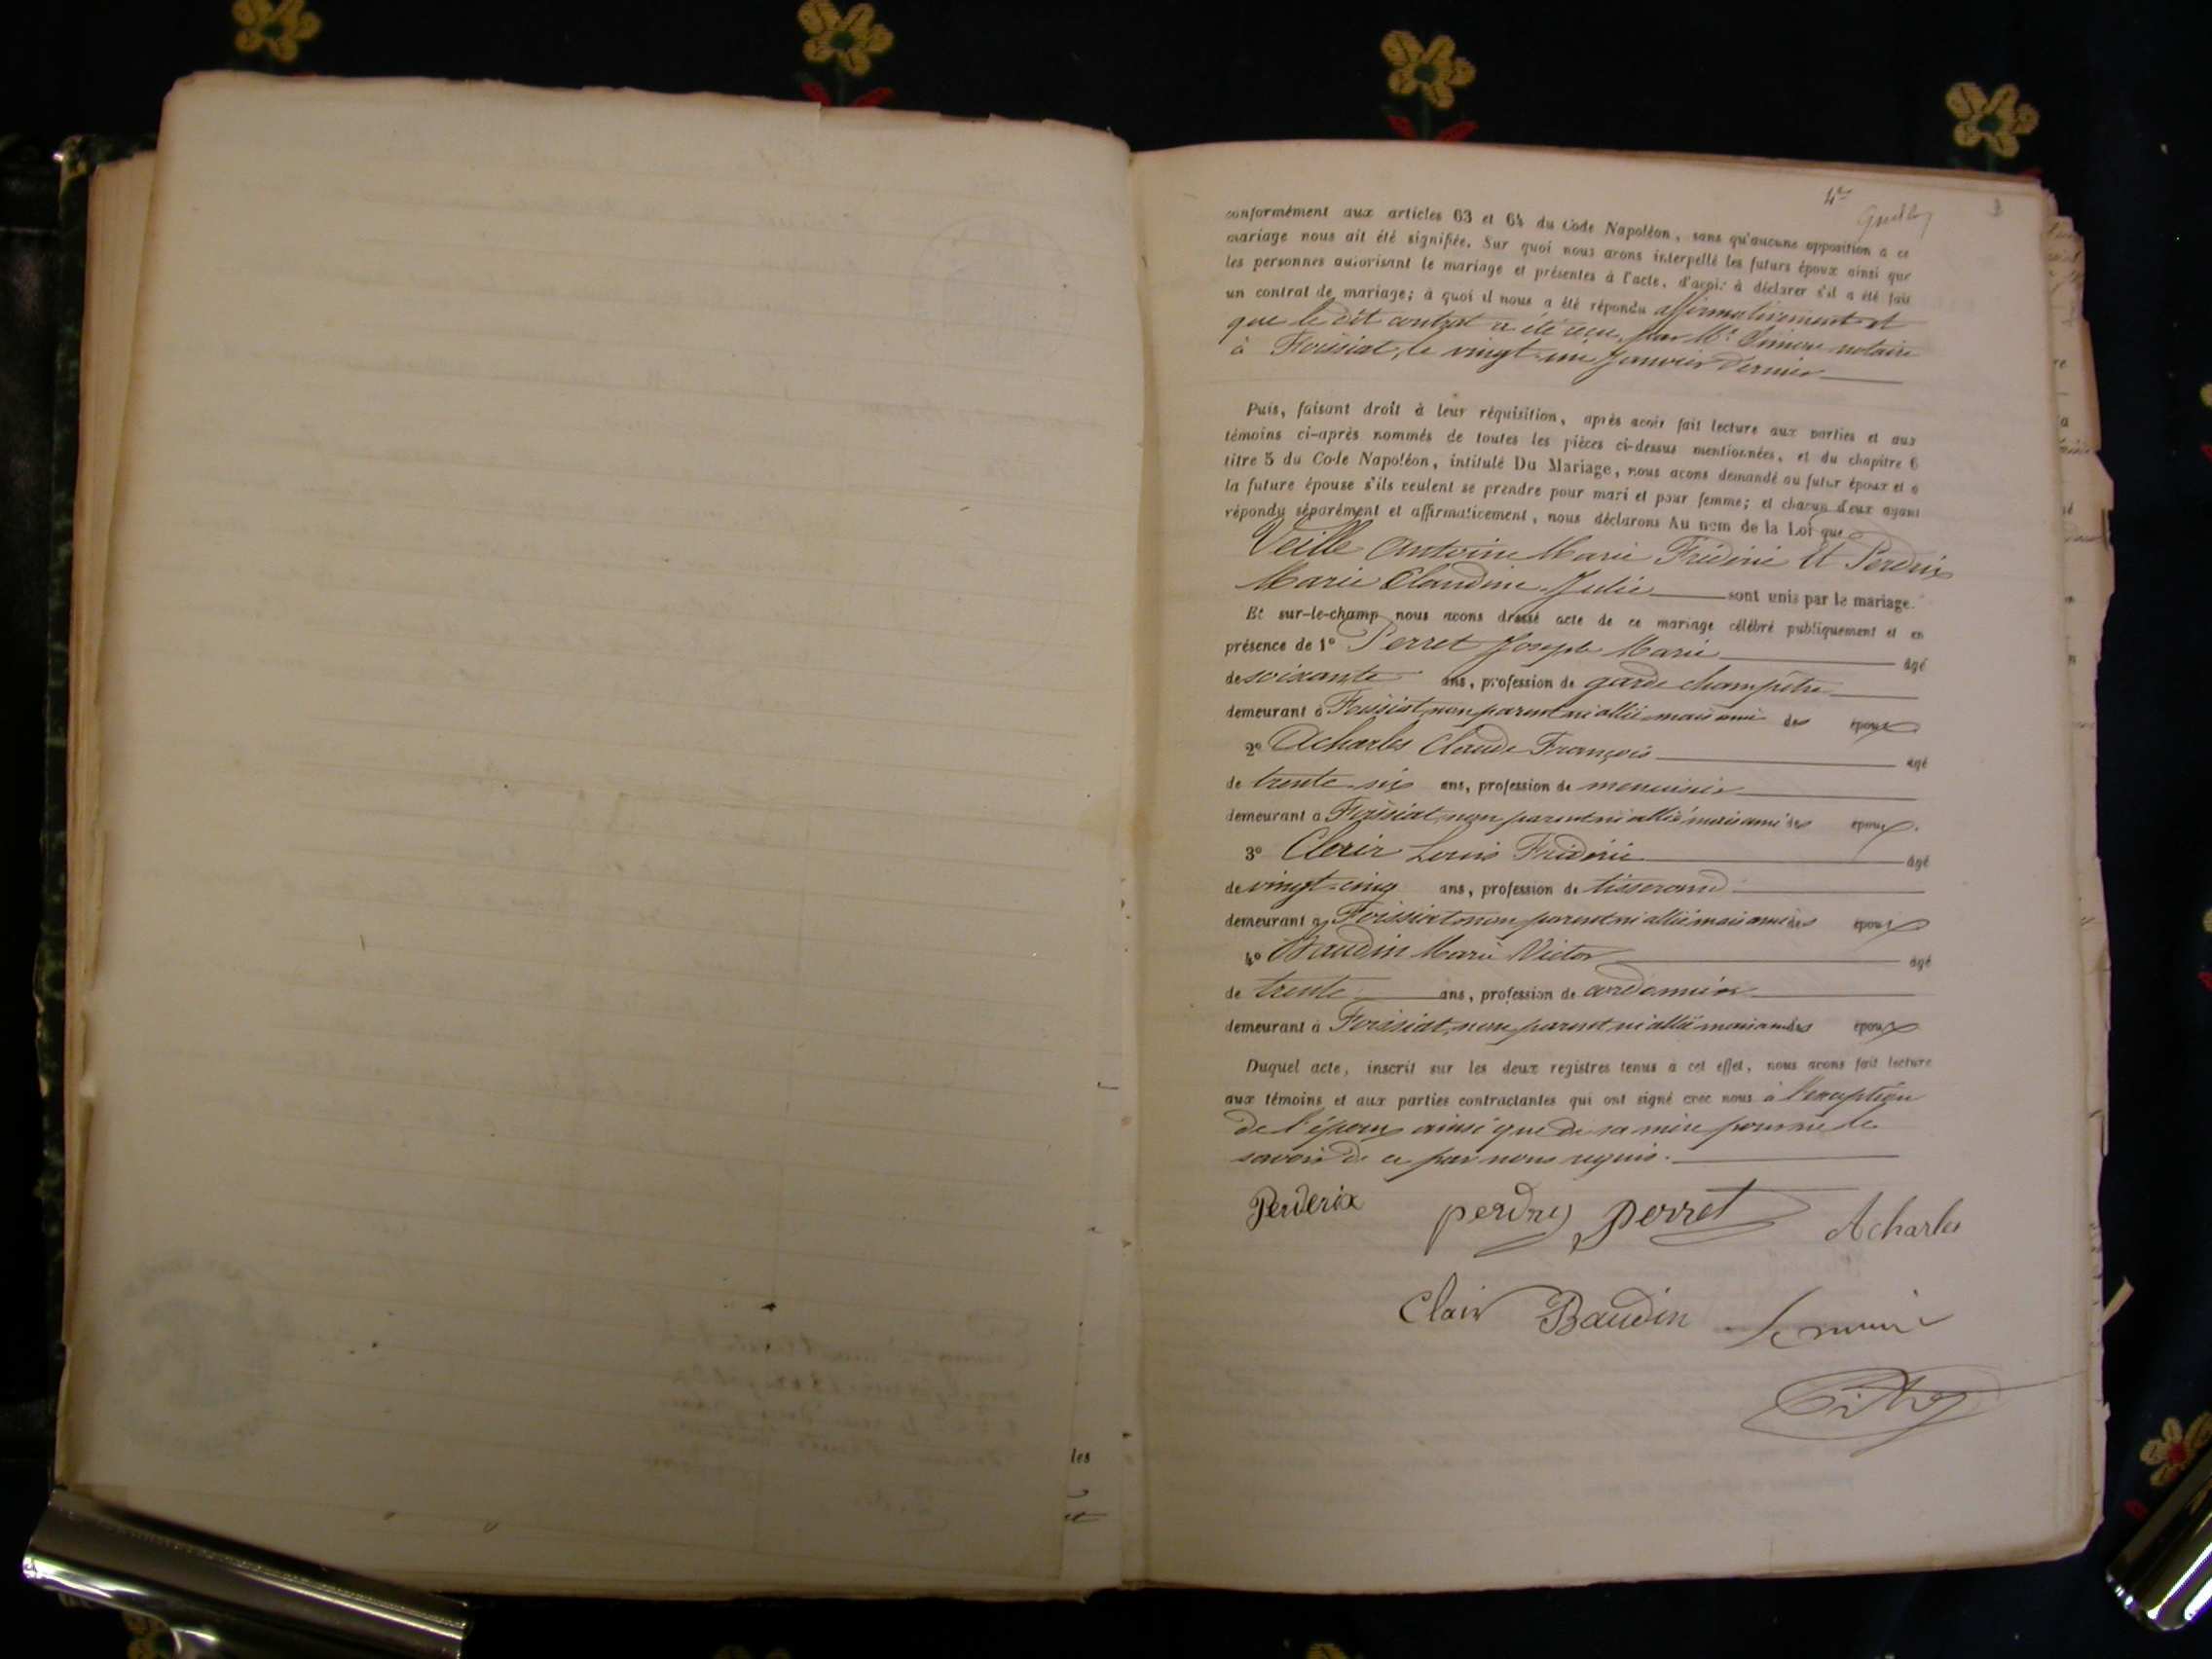 4e
conformément aux articles 63 et 64 du Code Napoléon, sans qu'aucune opposition à ce
mariage nous ait été signifiée. Sur quoi nous avons interpellé les futurs époux ainsi que
les personnes autorisant le mariage et présentes à l'acte, d'avoir à déclarer s'il a été fait
un contrat de mariage; à quoi il nous a été répondu affirmativement et
que le dit contrat a été reçu par Me notaire
à Foissiat, le vingt-un Janvier dernier
Puis, faisant droit à leur réquisition, après avoir fait lecture aux parties et aux
témoins ci-après nommés de toutes les pièces ci-dessus mentionnées, et du chapitre 6
titre 5 du Code Napoléon, intitulé Du Mariage, nous avons demandé au futur époux et à
la future épouse s'ils veulent se prendre pour mari et pour femme; et chacun d'eux ayant
répondu séparément et affirmativement, nous déclarons Au nom de la Loi que
Veille Antoine Marie Fréderic Et Perdrix
Marie Claudine Julie sont unis par le mariage.
Et sur-le-champ nous avons dressé acte de ce mariage célébré publiquement et en
présence de 1° Perret Joseph Marie âgé
de soixante ans, profession de garde champêtre
demeurant à Foissiat, non parent ni allié mais ami des époux
2° Acharles Claude François âgé
de trente-six ans, profession de menuisier
demeurant à Foissiat, non parent ni allié mais ami des époux.
3° Clair Louis Fréderic âgé
de vingt-cinq ans, profession de tisserand
demeurant à Foissiat non parent ni allié mais ami des époux
4° Baudin Marie Victor âgé
de trente ans, profession de cordonnier
demeurant à Foissiat, non parent ni allié mais ami des époux
Duquel acte, inscrit sur les deux registres tenus à cet effet, nous avons fait lecture
aux témoins et aux parties contractantes qui ont signé avec nous à l'exception
de l'époux ainsi que de sa mère pour ne le
savoir de ce par nous requis.
Perderix perdrix perret Acharles
Clair Baudin Le maire
les
et